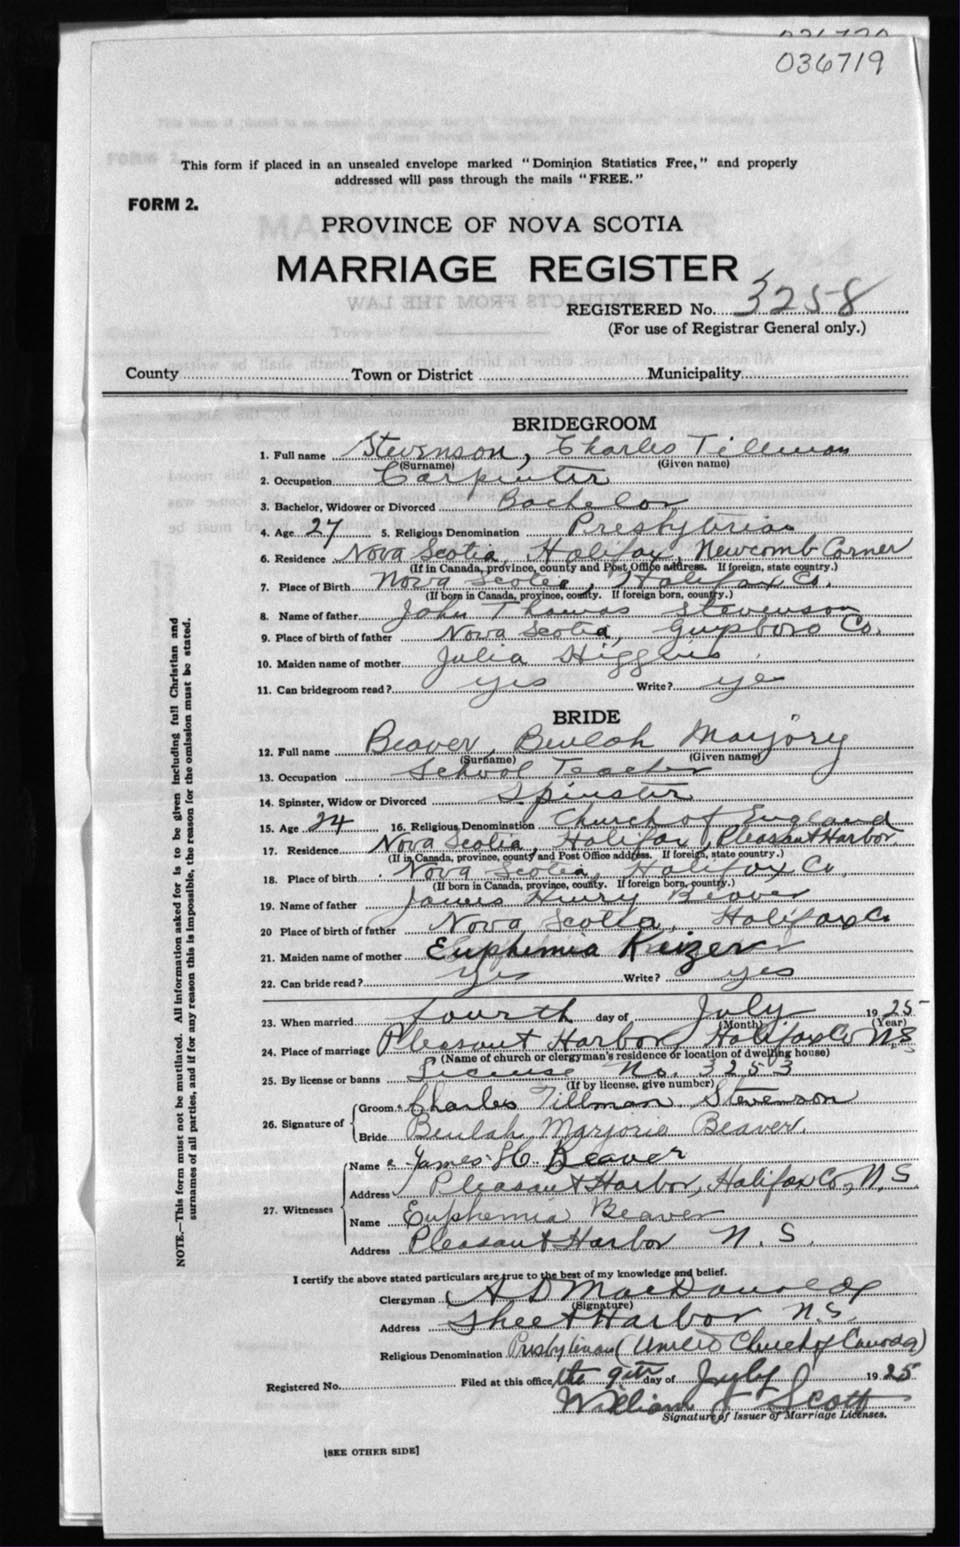 036720
036719
This form if placed in an unsealed envelope marked "Dominion Statistics Free," and properly
addressed will pass through the mails "FREE."
FORM 2.
PROVINCE OF NOVA SCOTIA
MARRIAGE REGISTER
REGISTERED No. 3258
(For use of Registrar General only.)
County Town or District Municipality
BRIDEGROOM
1. Full name Stevenson, Charles Tillman
(Surname) (Given name)
2. Occupation Carpenter
3. Bachelor, Widower or Divorced Bachelor
4. Age 27 5. Religious Denomination Presbyterian
6. Residence Nova Scotia, Halifax, Newcomb Corner
(If in Canada, province, county and Post Office address. If foreign, state country.)
7. Place of Birth Nova Scotia, Halifax Co.
(If born in Canada, province, county. If foreign born, country.)
8. Name of father John Thomas Stevenson
9. Place of birth of father Nova Scotia, Guysboro Co.
10. Maiden name of mother Julia Higgins
11. Can bridegroom read? yes Write? yes
BRIDE
12. Full name Beaver, Beulah Marjory
(Surname) (Given name)
13. Occupation School Teacher
14. Spinster, Widow or Divorced Spinster
15. Age 24 16. Religious Denomination Church of England
17. Residence Nova Scotia, Halifax, Pleasant Harbor
(If in Canada, province, county and Post Office address. If foreign, state country.)
18. Place of birth Nova Scotia, Halifax Co.
(If born in Canada, province, county. If foreign born, country.)
19. Name of father James Henry Beaver
20 Place of birth of father Nova Scotia, Halifax Co
21. Maiden name of mother Euphemia Keizer
22. Can bride read? Yes Write? yes
23. When married fourth day of July 1925
(Month) (Year)
24. Place of marriage Pleasant Harbor, Halifax Co N.S
(Name of church or clergyman's residence or location of dwelling house)
25. By license or banns License No. 3253
(If by license, give number)
26. Signature of Groom Charles Tillman Stevenson
Bride Beulah Marjorie Beaver.
27. Witnesses Name James H. Beaver
Address Pleasant Harbor, Halifax Co, N.S.
Name Euphemia Beaver
Address Pleasant Harbor N. S.
I certify the above stated particulars are true to the best of my knowledge and belief.
Clergyman A D MacDonald
(Signature)
Address Sheet Harbor N.S.
Religious Denomination Presbyterian (United Church of Canada)
Registered No. Filed at this office the 9th day of July 1925
William Scott
Signature of Issuer of Marriage Licenses.
[SEE OTHER SIDE]
NOTE.—This form must not be mutilated. All information asked for is to be given including full Christian and
surnames of all parties, and if for any reason this is impossible, the reason for the omission must be stated.